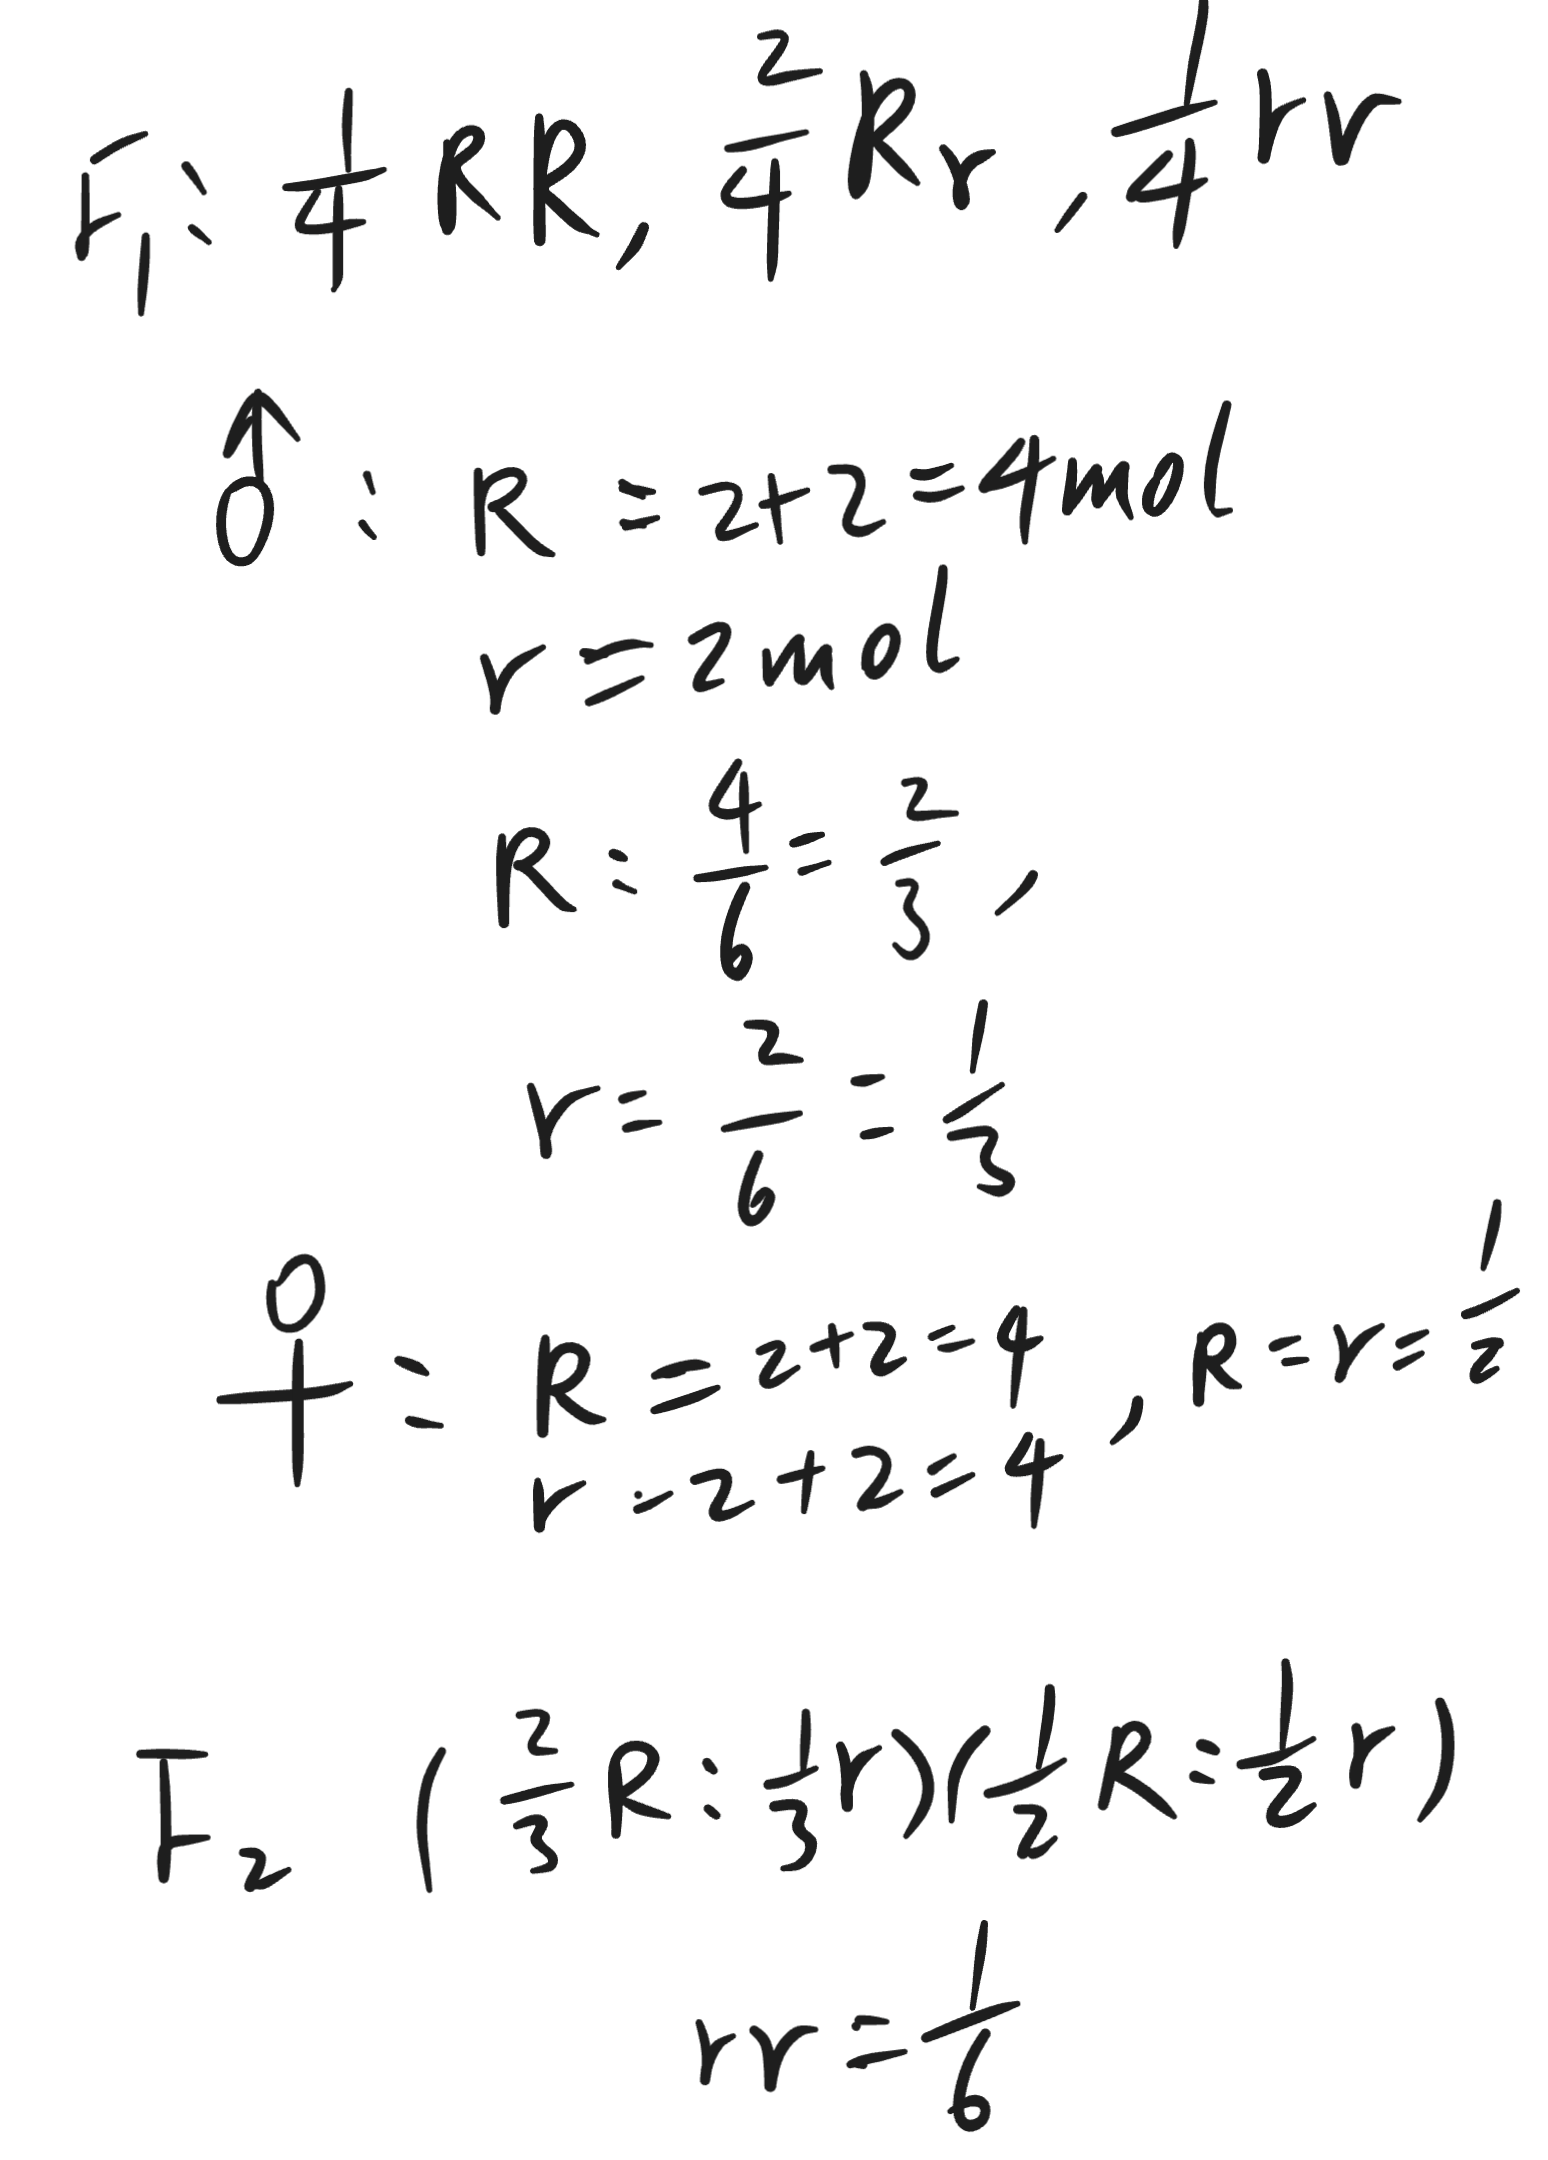 F₁: 1/4 RR, 2/4 Rr, 1/4 rr
♂: R = 2+2=4mol
r=2mol
R: 4/6 = 2/3,
r = 2/6 = 1/3
♀ = R = 2+2=4, R=r=1/2
r = 2+2=4
F₂ (2/3 R : 1/3 r)(1/2 R : 1/2 r)
rr = 1/6